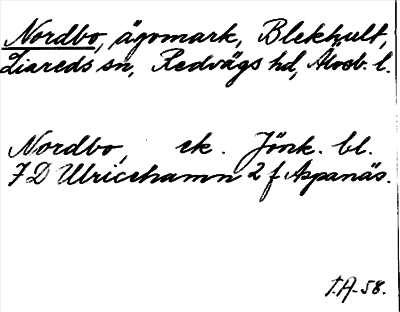 Nordbo, ägomark, Blekhult,
Liareds sn, Redvägs hd, Älvsb. l.
Nordbo, ek. Jönk. bl.
7 D Ulricehamn 2 f Aspanäs.
T.A-58.